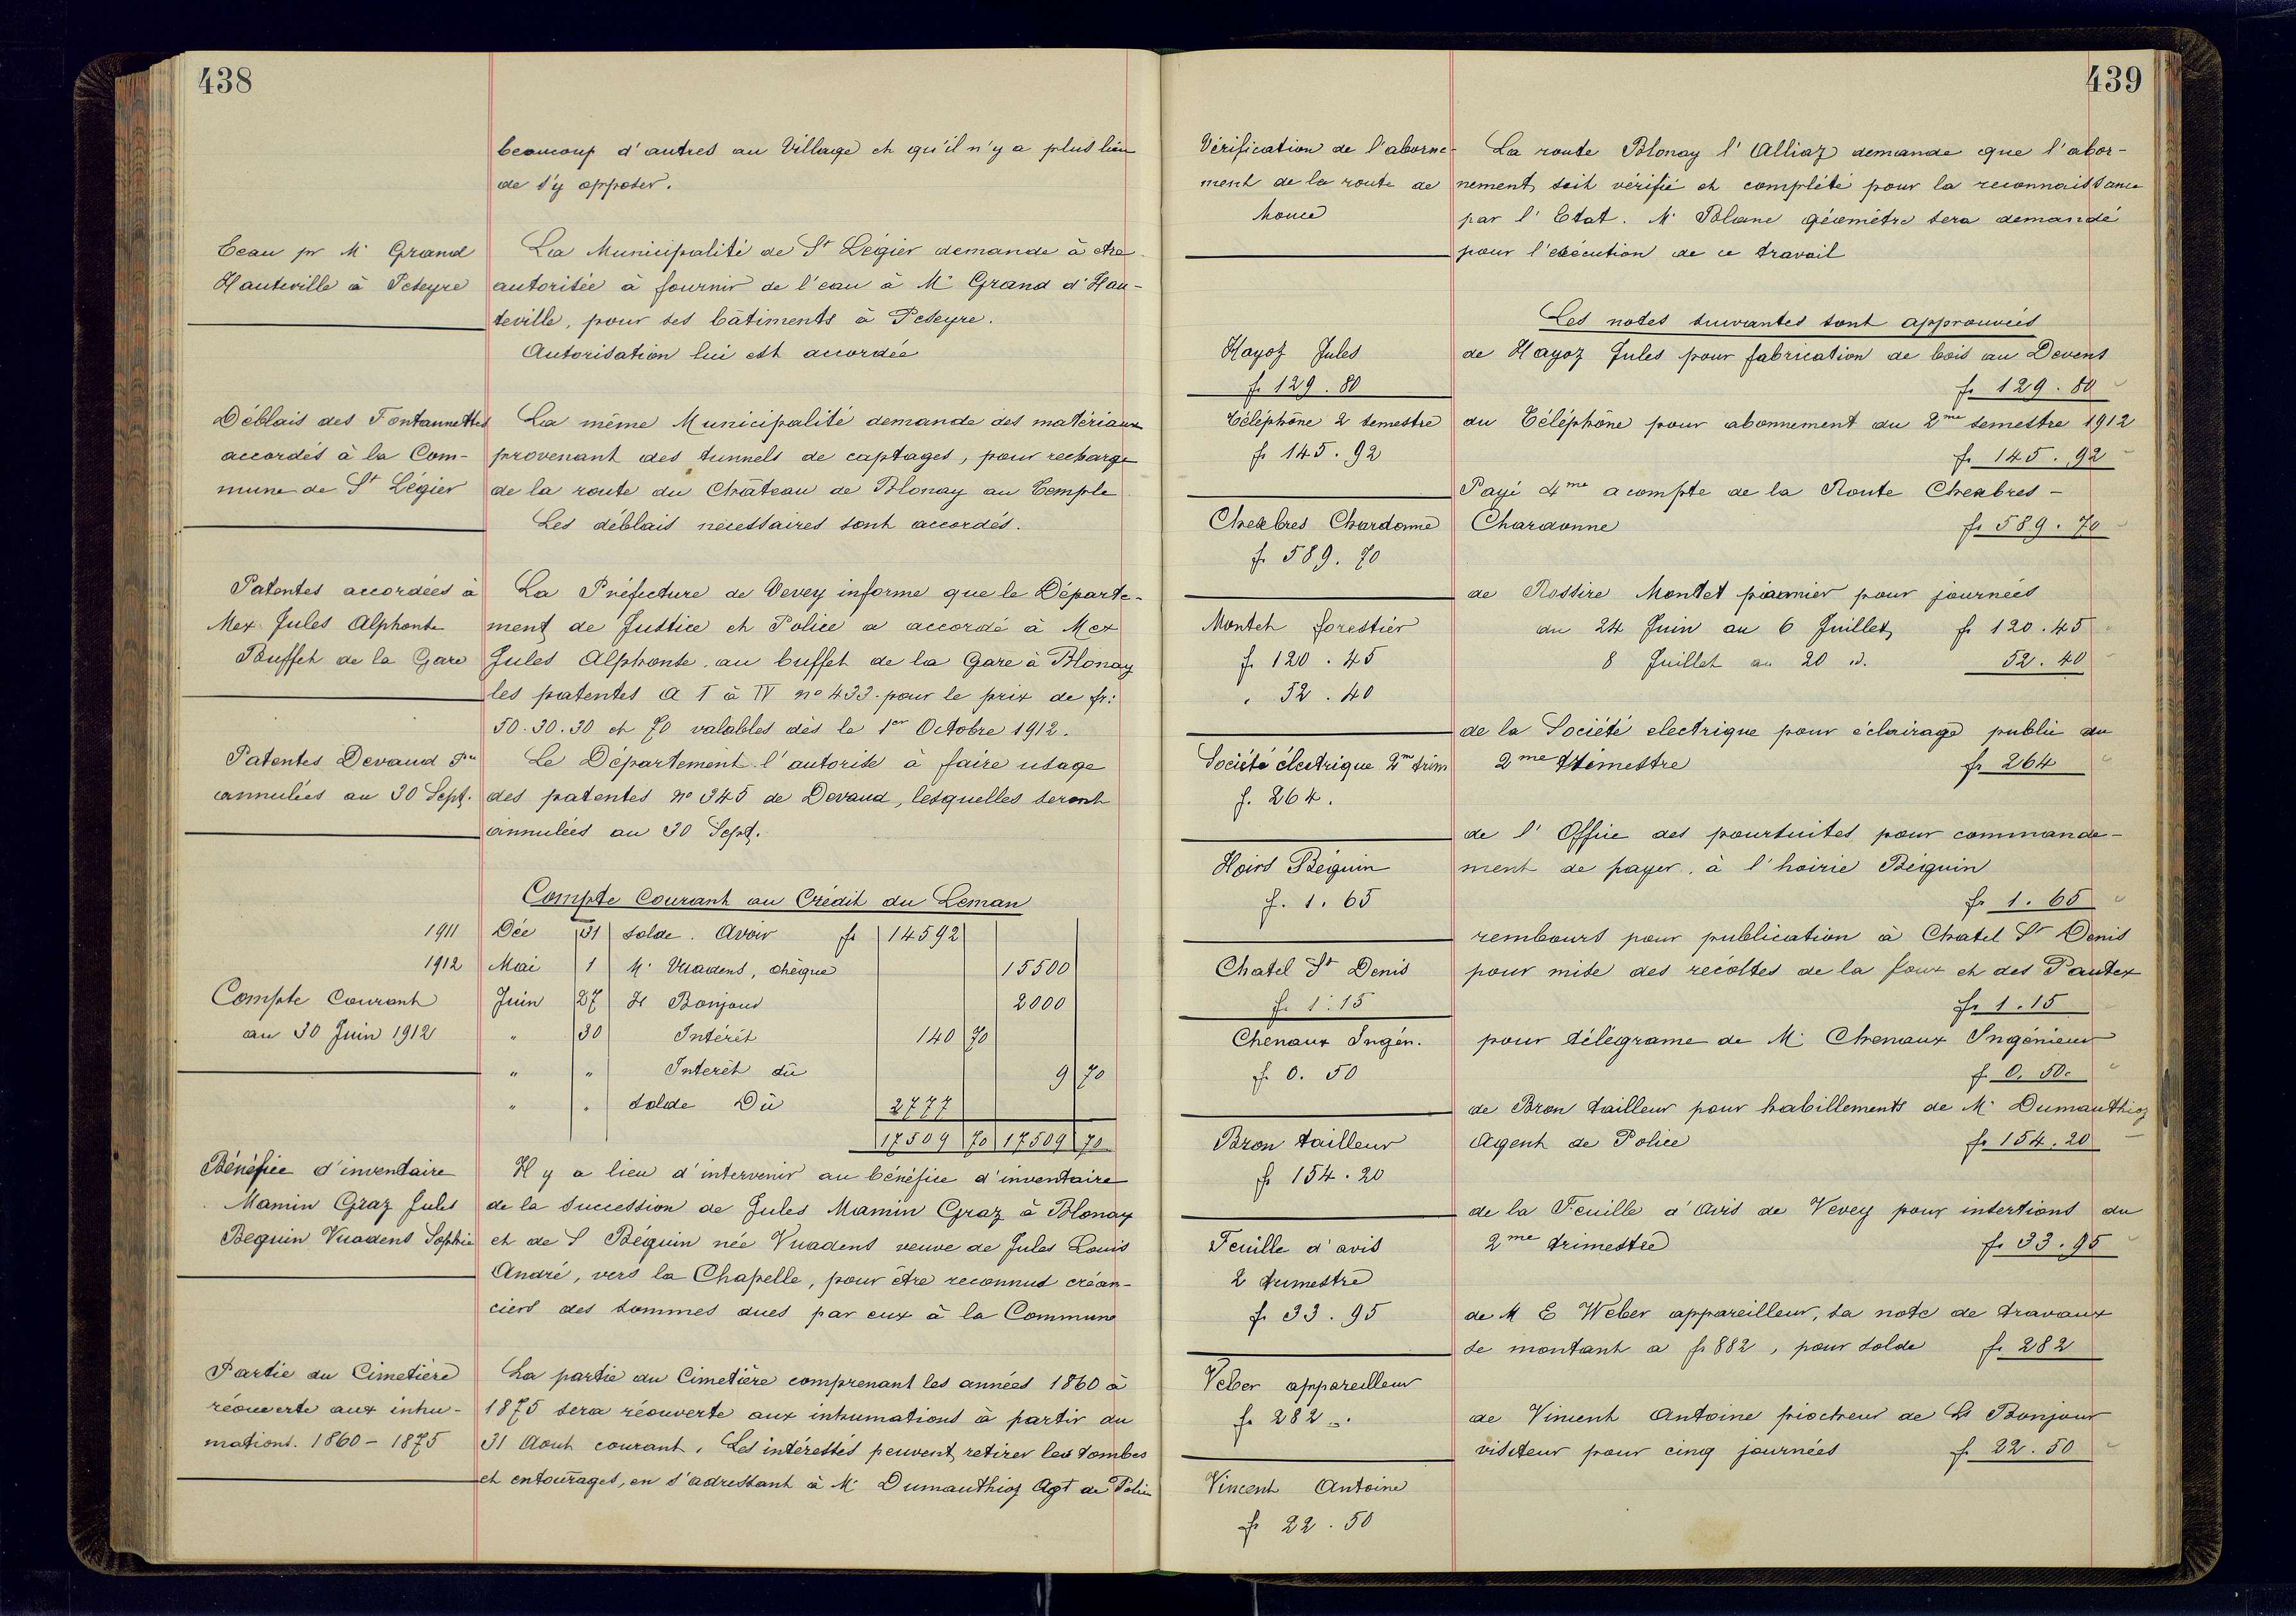 438
beaucoup d'autres au Village et qu'il n'y a plus lieu
de s'y opposer.
Eau pr Mr Grand
Hauteville à Peteyre
La Municipalité de St Légier demande à être
autorisée à fournir de l'eau à Mr Grand d'Hau-
teville, pour ses bâtiments à Peteyre.
Autorisation lui est accordée
Déblais des Fontannettes
accordés à la Com-
mune de St Légier
La même Municipalité demande des matériaux
provenant des tunnels de captages, pour recharge
de la route du Château de Blonay au Temple
Les déblais nécessaires sont accordés.
Patentes accordées à
Mex Jules Alphonse
Buffet de la Gare
La Préfecture de Vevey informe que le Départe-
ment de Justice et Police a accordé à Mex
Jules Alphonse au buffet de la Gare à Blonay
les patentes A I à IV no 433 pour le prix de fr:
50.30.30 et 70 valables dès le 1er Octobre 1912.
Patentes Devaud
annulées au 30 Sept.
Le Département l'autorise à faire usage
des patentes no 345 de Devaud, lesquelles seront
annulées au 30 Sept.
Compte Courant au Crédit du Leman
1911 Déc 31 solde. Avoir fr 14592
1912 Mai 1 Mr Vuadens, chèque 15500
Compte Courant
au 30 Juin 1912
Juin 27 H Bonjour 2000
" 30 Intérêt 140 70
" " Interêt dû 9 70
" " solde Dû 2777
17509 70 17509 70
Bénéfice d'inventaire
Mamin Graz Jules
Beguin Vuadens Sophie
Il y a lieu d'intervenir au bénéfice d'inventaire
de la succession de Jules Mamin Graz à Blonay
et de S Béguin née Vuadens veuve de Jules Louis
André, vers la Chapelle, pour être reconnus créan-
ciers des sommes dues par eux à la Commune
Partie du Cimetière
réouverte aux inhu-
mations. 1860 - 1875
La partie du Cimetière comprenant les années 1860 à
1875 sera réouverte aux inhumations à partir du
31 Aout courant. Les intéressés peuvent retirer les tombes
et entourages, en s'adressant à Mr Dumauthioz Agt de Police
439
Vérification de l'aborne-
ment de la route de
La route Blonay l'Alliaz demande que l'abor-
nement soit vérifié et complété pour la reconnaissance
par l'Etat. Mr Blanc géomètre sera demandé
pour l'exécution de ce travail
Les notes suivantes sont approuvées
Hayoz Jules
fr 129.80
de Hayoz Jules pour fabrication de bois au Devens
fr 129.80
Téléphône 2 semestre
fr 145.92
du Téléphône pour abonnement du 2me semestre 1912
fr 145.92
Chexbres Chardonne
fr 589.70
Payé 4me acompte de la Route Chexbres -
Chardonne fr 589.70
Montet forestier
fr 120.45
" 52.40
de Rossire Montet pionnier pour journées
du 24 Juin au 6 Juillet fr 120.45
8 Juillet au 20 d. 52.40
Société électrique 2me trim
f. 264.
de la Société electrique pour éclairage public du
2me trimestre fr 264
Hoirs Béguin
f. 1.65
de l'Office des poursuites pour commande-
ment de payer, à l'hoirie Béguin
fr 1.65
Chatel St Denis
fr 1.15
rembours pour publication à Chatel St Denis
pour mise des récoltes de la foux et des Pautex
fr 1.15
Chenaux Ingén.
f. 0.50
pour télégrame de Mr Chenaux Ingénieur
f 0.50.
Bron tailleur
fr 154.20
de Bron tailleur pour habillements de Mr Dumauthioz
Agent de Police fr 154.20
Feuille d'avis
2 trimestre
fr 33.95
de la Feuille d'Avis de Vevey pour insertions du
2me trimestre fr 33.95
Veber appareilleur
fr 282 -.
de M E Weber appareilleur, sa note de travaux
se montant a fr 882, pour solde fr 282
Vincent Antoine
fr 22.50
de Vincent Antoine piocheur de Ls Bonjour
visiteur pour cinq journées fr 22.50